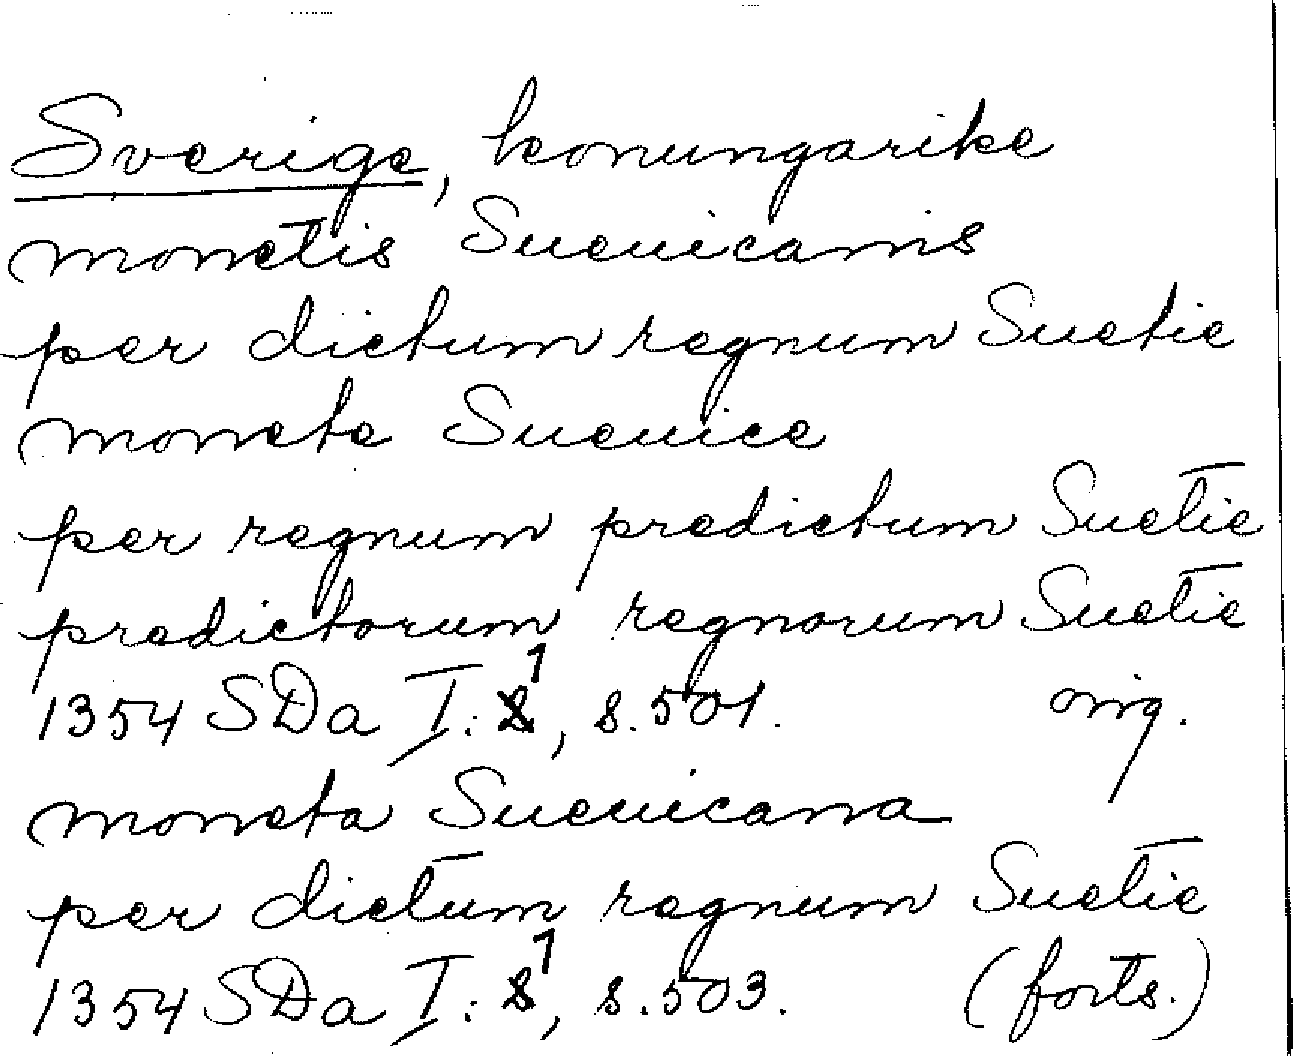 Sverige, konungarike
monetis Sueuicanis
per dictum regnum Suetie
monete Sueuice
per regnum predictum Suetie
predictorum regnorum Suetie
1354 SDa I:1, s. 501. orig.
moneta Sueuicana
per dictum regnum Suetie
1354 SDa I:1, s. 503. (forts.)